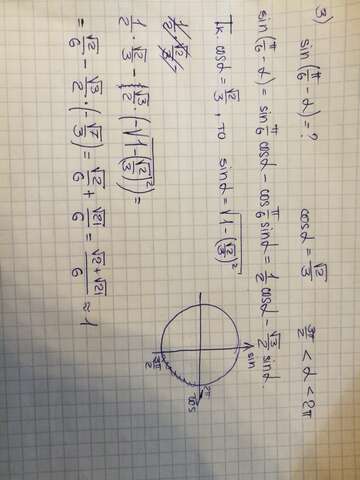 3) sin(π/6 - α) = ? cosα = √2/3 3π/2 < α < 2π
sin(π/6 - α) = sin π/6 cosα - cos π/6 sinα = 1/2 cosα - √3/2 sinα.
Т.к. cosα = √2/3, то sinα = √(1-(√2/3)²)
sin
2π
cos
3π/2
1/2 · √2/3 - √3/2 · (-√(1-(√2/3)²)) =
= √2/6 - √3/2 · (-√7/3) = √2/6 + √21/6 = (√2 + √21)/6 ≈ 1